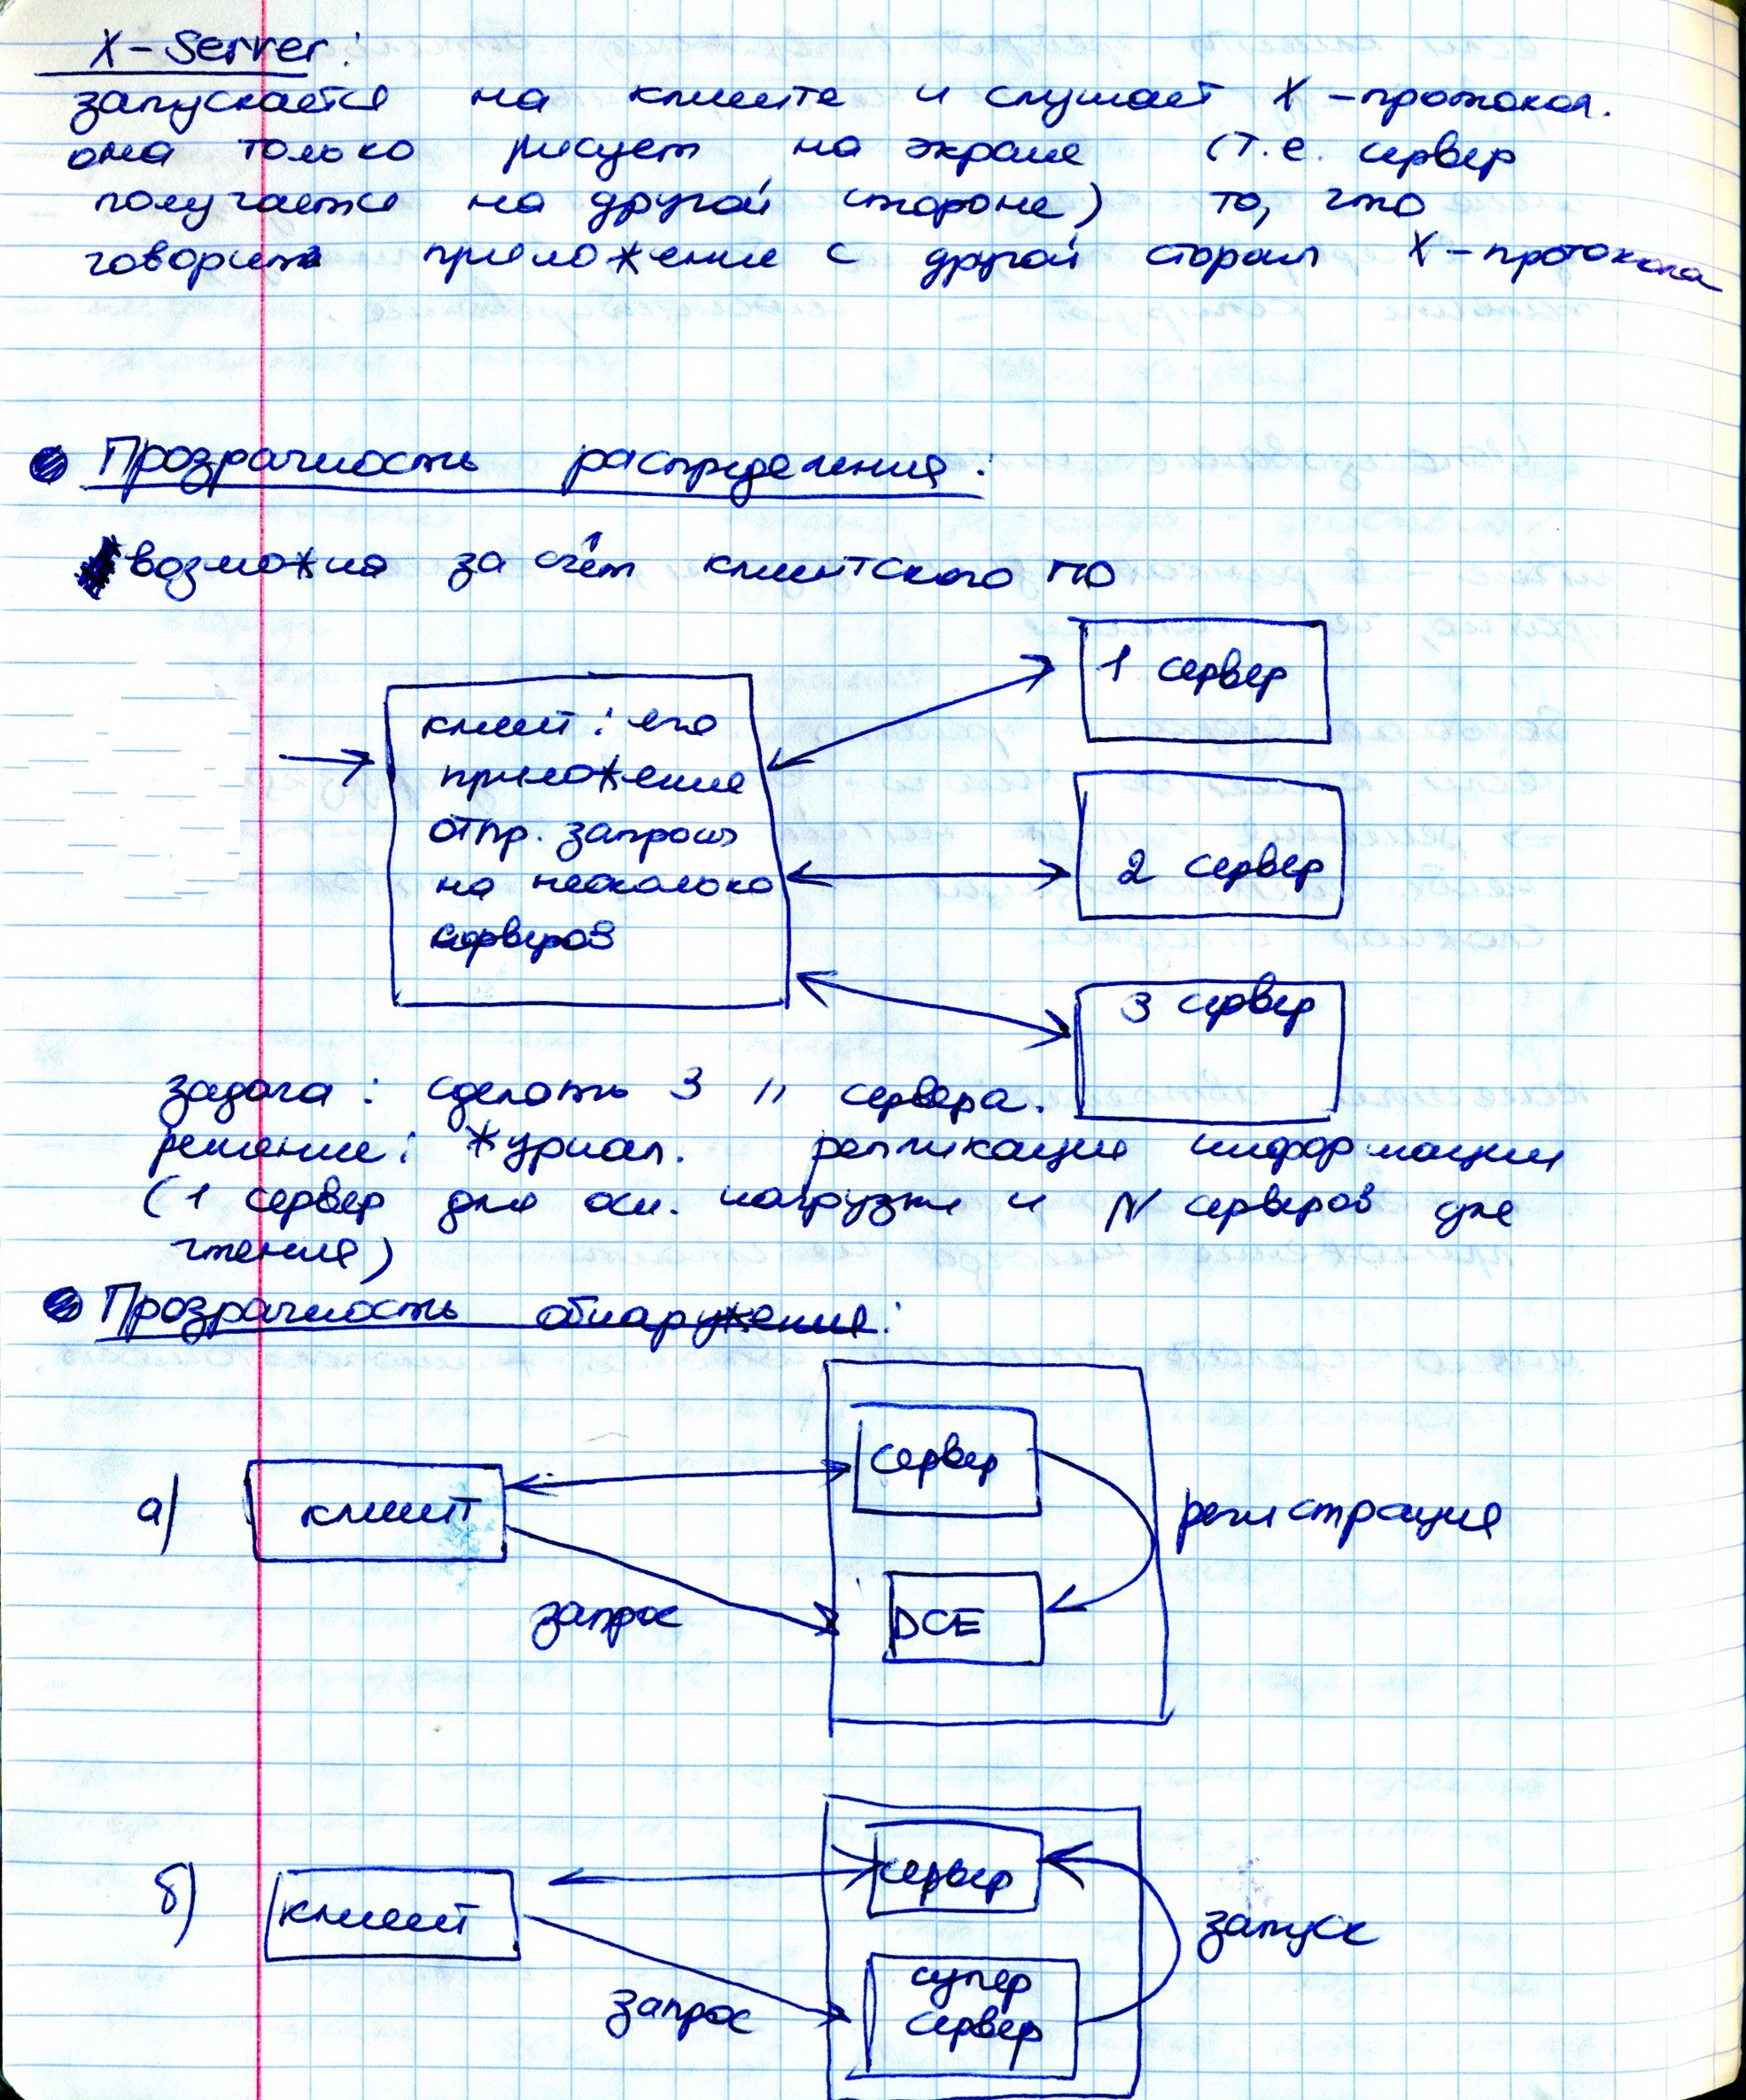 X-Server:
запускается на клиенте и слушает X-протокол.
она только рисует на экране (т.е. сервер
получается на другой стороне) то, что
говорит приложение с другой сторон X-протокола
Прозрачность распределения:
возможна за счёт клиентского ПО
1 сервер
клиент: его
приложение
отпр. запросы
на несколько
серверов
2 сервер
3 сервер
задача: сделать 3 || сервера.
решение: журнал. репликация информации
(1 сервер для осн. нагрузки и N серверов для
чтения)
Прозрачность обнаружения:
а)
клиент
сервер
регистрация
запрос
DCE
б)
клиент
сервер
запуск
запрос
супер
сервер